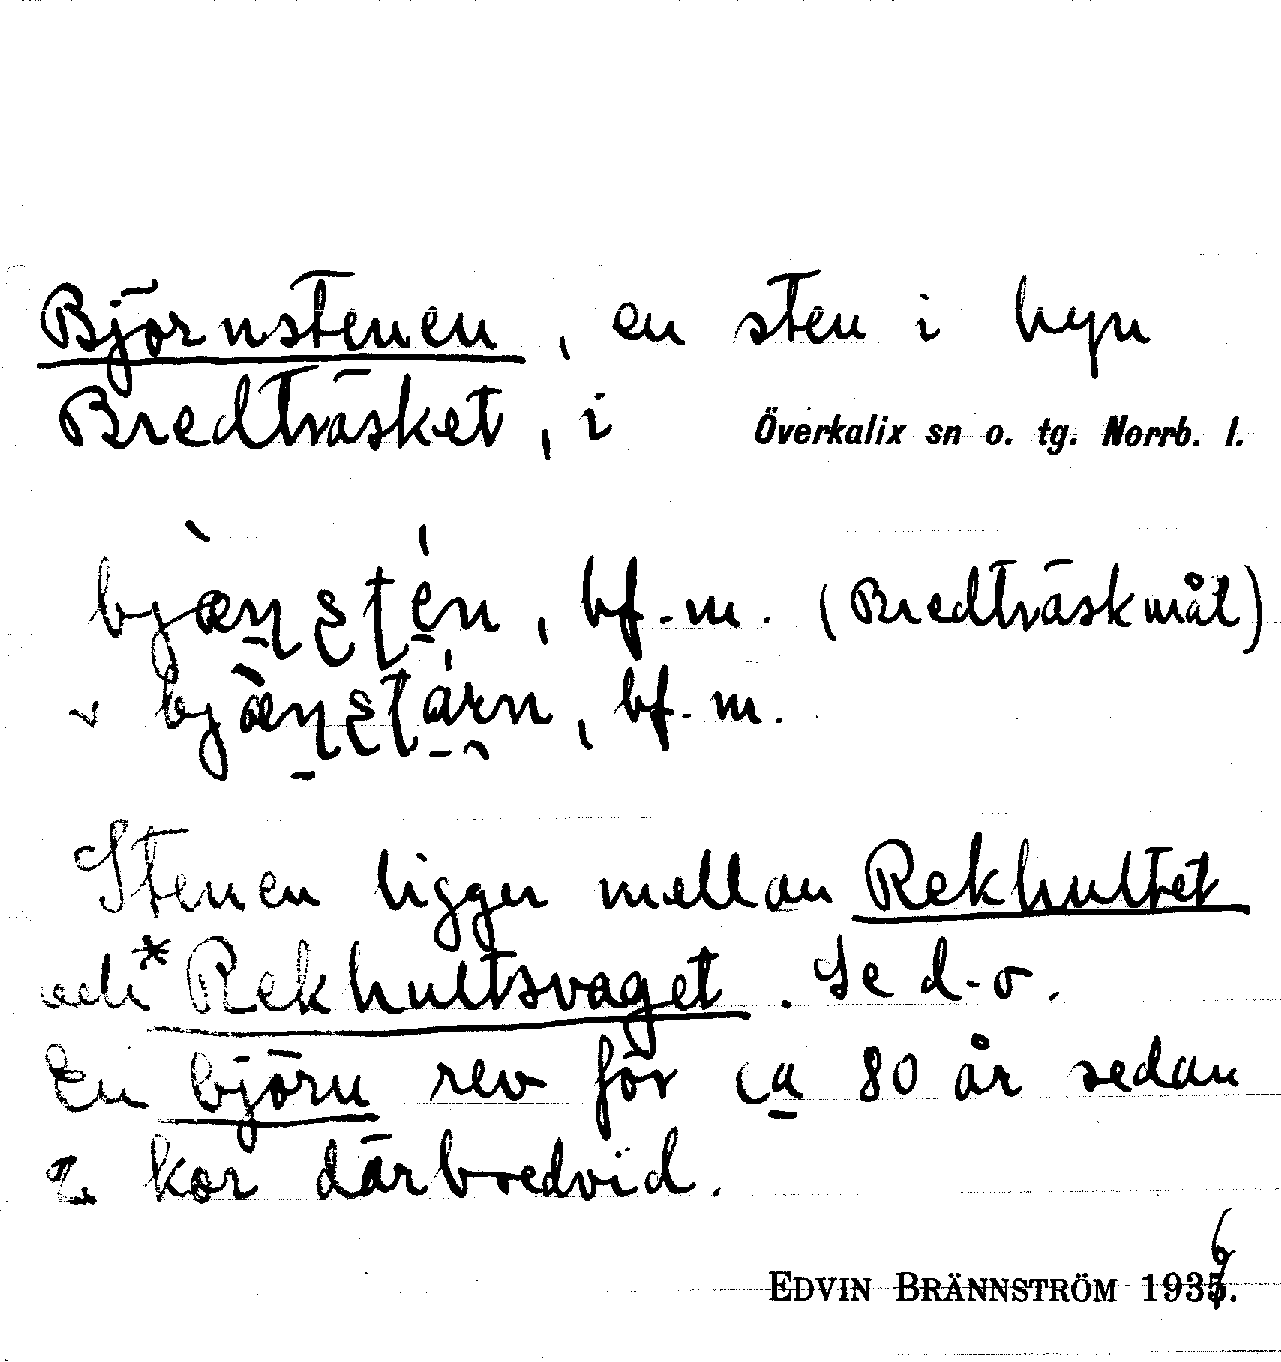 Björnstenen, en sten i byn
Bredträsket, i Överkalix sn o. tg. Norrb. l.
bjæ̀ɳʂʈén, bf. m. (Bredträskmål)
v bjæ̀ɳʂʈárn, bf. m.
Stenen ligger mellan Rekhultet
och *Rekhultsvaget. Se d-o.
En björn rev för ca 80 år sedan
2 kor därbredvid.
EDVIN BRÄNNSTRÖM 1936.